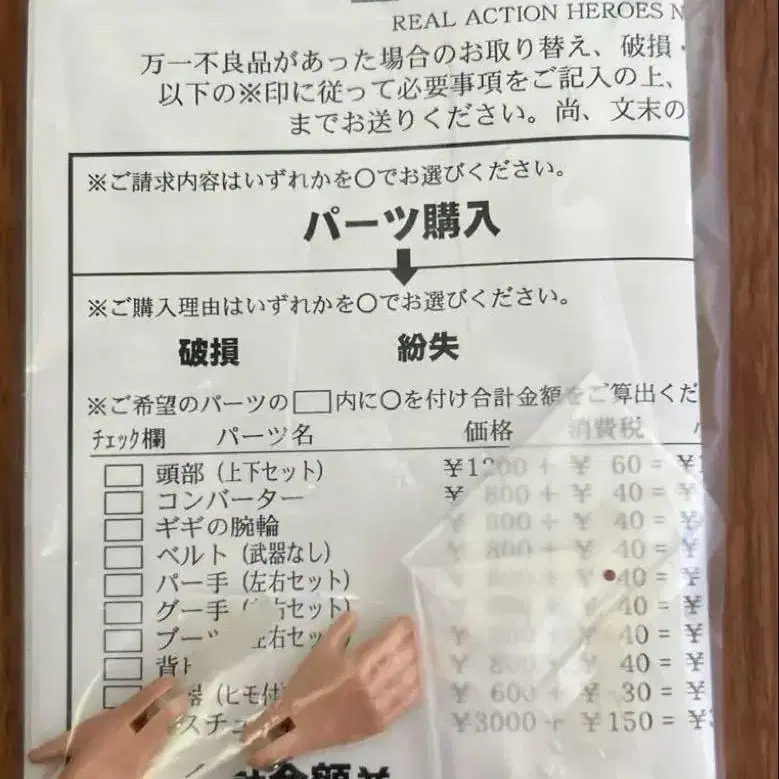 REAL ACTION HEROES N
万一不良品があった場合のお取り替え、破損・
以下の※印に従って必要事項をご記入の上、
までお送りください。尚、文末の
※ご請求内容はいずれかを〇でお選びください。
パーツ購入
※ご購入理由はいずれかを〇でお選びください。
破損 紛失
※ご希望のパーツの□内に〇を付け合計金額をご算出くだ
チェック欄 パーツ名 価格 消費税
頭部(上下セット) ¥1200 + ¥ 60 = ¥
コンバーター ¥ 800 + ¥ 40 = ¥
ギギの腕輪 ¥ 800 + ¥ 40 = ¥
ベルト(武器なし) ¥ 800 + ¥ 40 = ¥
パー手(左右セット) ¥ 40 = ¥
グー手 セット) ¥ 40 = ¥
ブー 左右セッ ¥ 40 = ¥
背 ¥ 800 + ¥ 40 = ¥
(ヒモ付 ¥ 600 + ¥ 30 = ¥
スチュ ¥3000 + ¥150 = ¥
金額¥